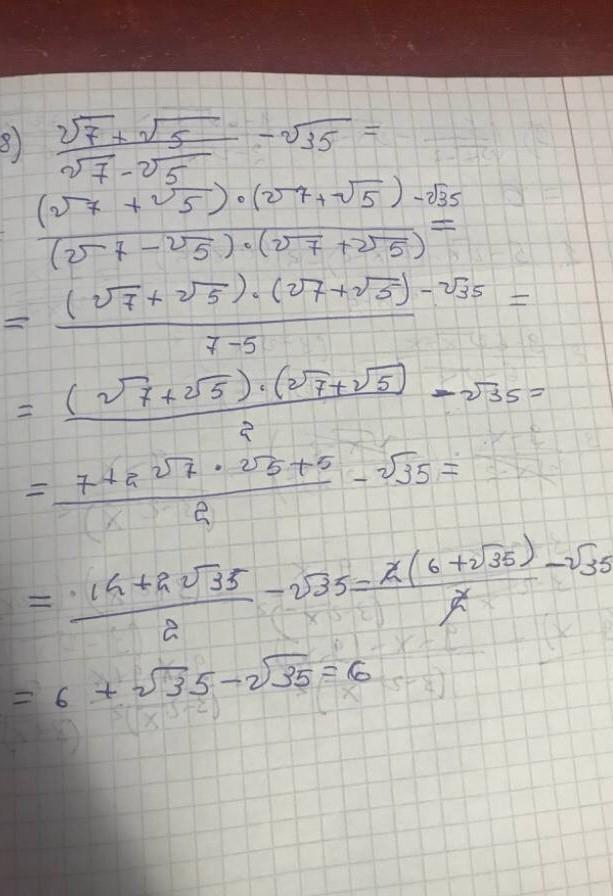 8) (√7 + √5)/(√7 - √5) - √35 =
((√7 + √5)·(√7 + √5))/((√7 - √5)·(√7 + √5)) - √35 =
= ((√7 + √5)·(√7 + √5))/(7-5) - √35 =
= ((√7 + √5)·(√7 + √5))/2 - √35 =
= (7 + 2√7 · √5 + 5)/2 - √35 =
= (12 + 2√35)/2 - √35 = 2(6 + √35)/2 - √35
= 6 + √35 - √35 = 6